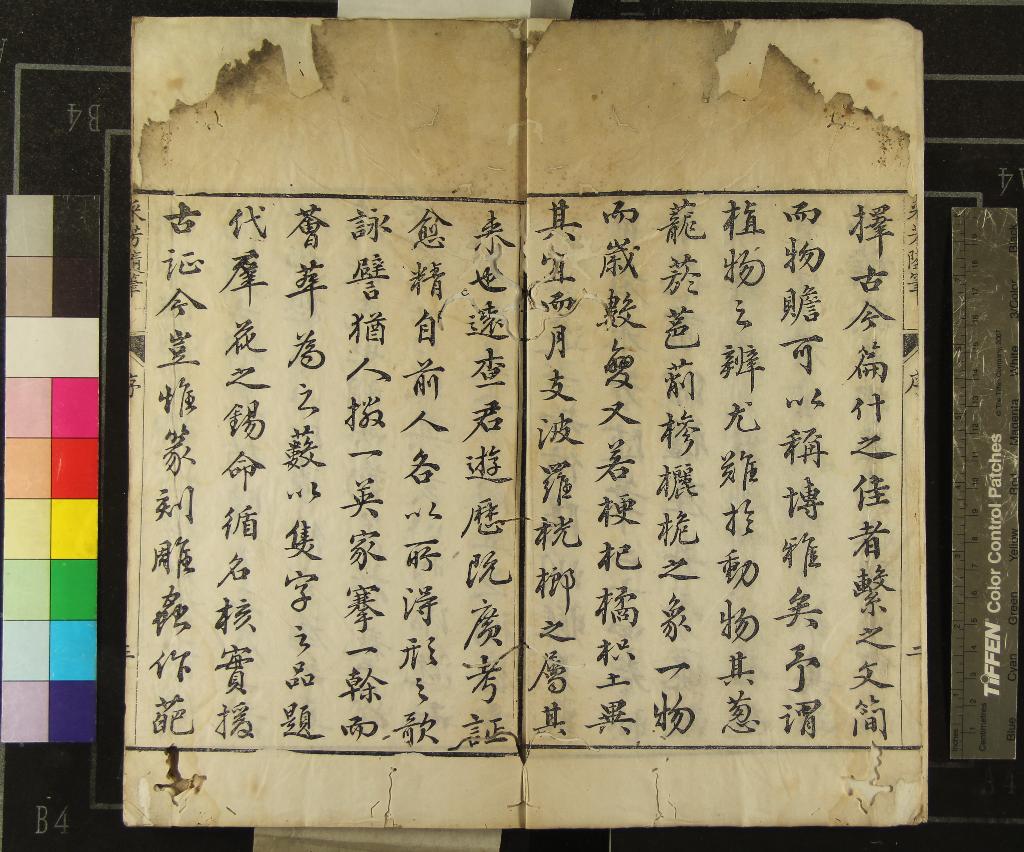 擇古今篇什之佳者繫之文簡
而物贍可以稱博雅矣予謂
植物之辨尤難於動物其蔥
蘢菸芭萷槮欐桅之象一物
而歲數變又若梗杞橘枳土異
其宜而月支波羅桄榔之屬其
来也遠查君遊歷既廣考証
愈精自前人各以所得形之歌
詠譬猶人掇一英家搴一榦而
薈萃為之藪以隻字之品題
代羣花之錫命循名核實援
古証今豈惟篆刻雕蟲作葩
采芳隨筆
序
二
采芳隨筆
序
三
B4
B4
TIFFEN Color Control Patches
© The Tiffen Company, 2007
Inches
Centimetres
Blue
Cyan
Green
Yellow
Red
Magenta
White
3/Color
Black